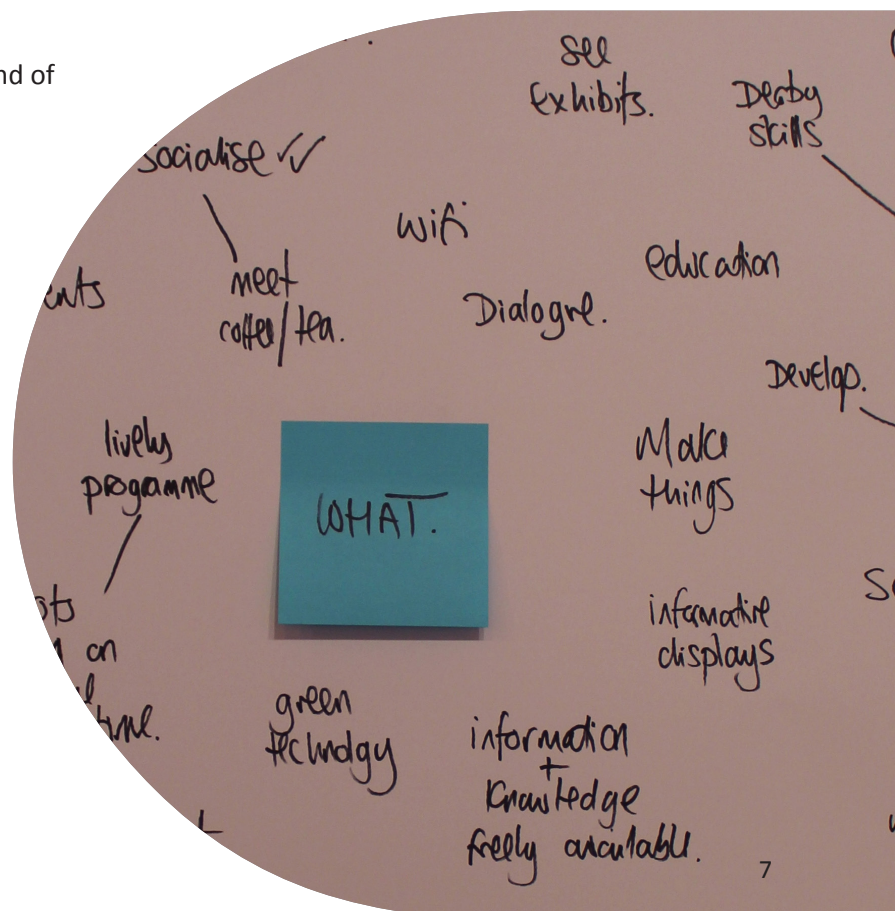 nd of
see
exhibits.
Derby
skills
socialise ✓✓
wifi
meet
coffee/tea.
education
Dialogue.
ents
Develop.
lively
programme
Make
things
WHAT.
informative
displays
sts
on
time.
green
technology
information
+
knowledge
freely available.
7